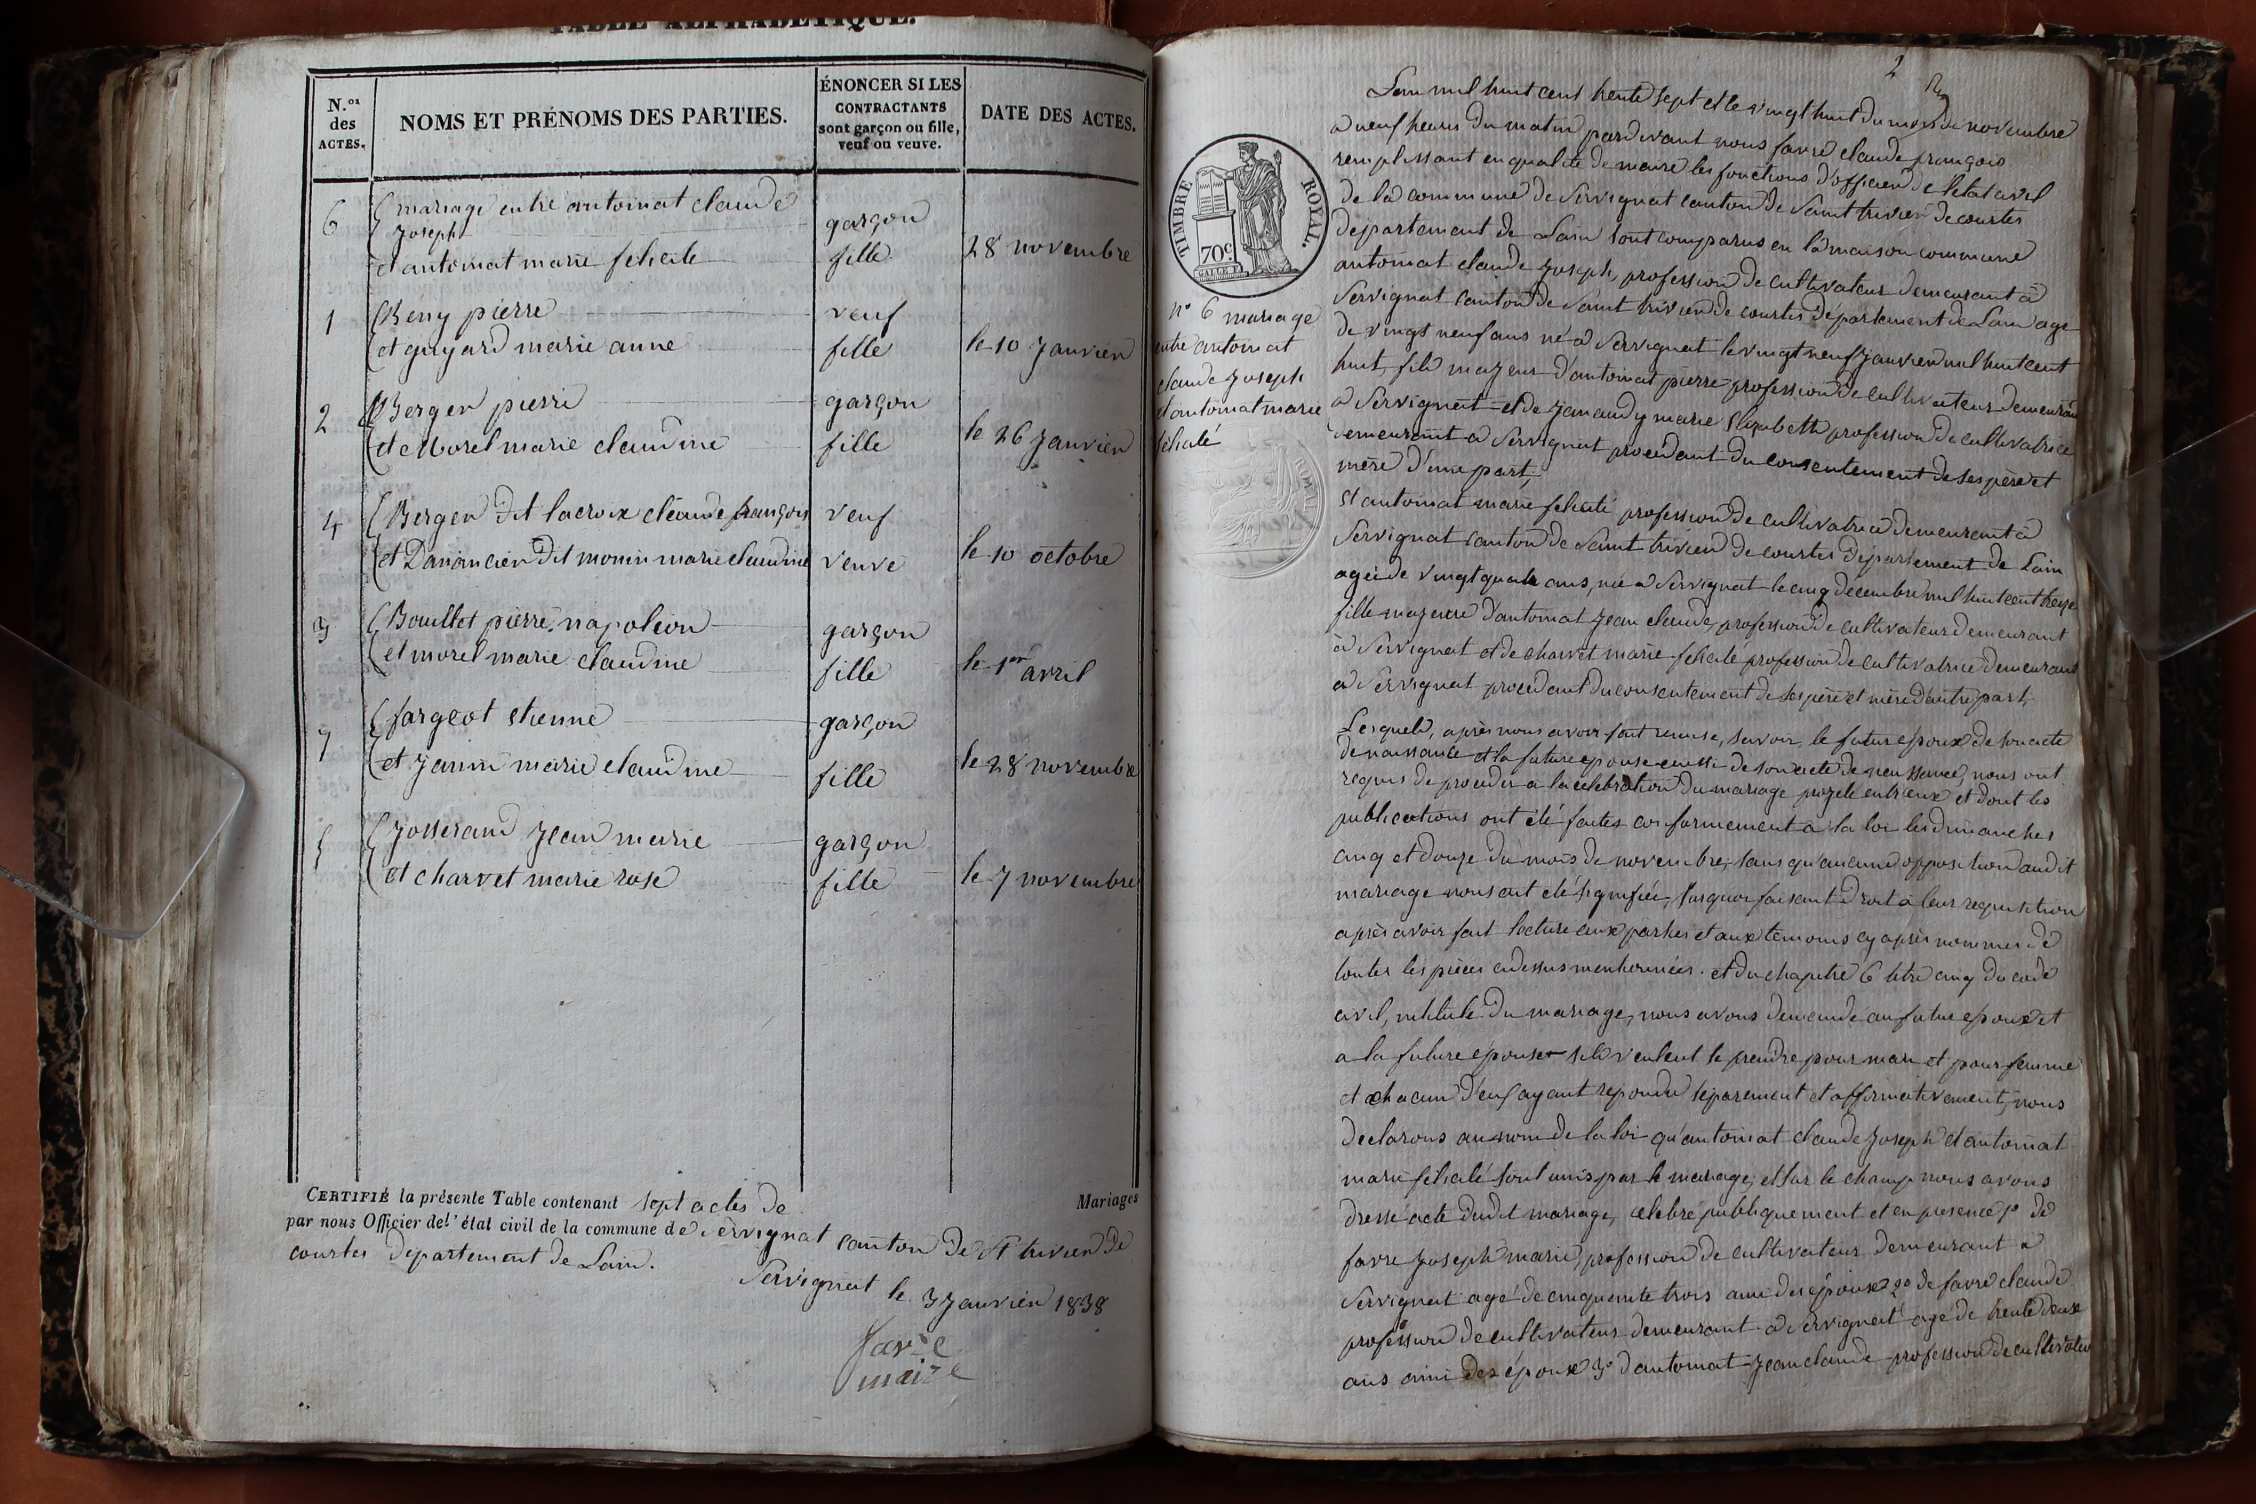 TABLE ALPHABÉTIQUE.
N.os des ACTES.
NOMS ET PRÉNOMS DES PARTIES.
ÉNONCER SI LES CONTRACTANTS sont garçon ou fille, veuf ou veuve.
DATE DES ACTES.
6 mariage entre antoinat claude
Joseph garçon
et antoinat marie felicité fille 28 novembre
1 Beny pierre veuf
et guyard marie anne fille le 10 Janvier
2 Berger pierre garçon
et Morel marie claudine fille le 26 Janvier
4 Berger dit lacroix claude françois veuf
et Danancier dit monin marie claudine veuve le 10 octobre
3 Bouillet pierre napoleon garçon
et morel marie claudine fille le 1er avril
7 fargeot etienne garçon
et Janin marie claudine fille le 28 novembre
5 Josserand Jean marie garçon
et charvet marie rose fille le 7 novembre
CERTIFIÉ la présente Table contenant sept actes de Mariages
par nous Officier de l'état civil de la commune de servignat canton de St trivier de
courtes departement de Lain.
Servignat le 3 Janvier 1838
favre
maire
2
TIMBRE ROYAL.
70c
ROYAL
no 6 mariage
entre antoinat
claude Joseph
et antoinat marie
felicité
Lan mil huit cent trente sept et le vingt huit du mois de novembre
a neuf heures du matin pardevant nous favre claude françois
remplissant en qualité de maire les fonctions d'officier de l'etat civil
de la commune de Servignat canton de Saint trivier de courtes
departement de Lain sont comparus en la maison commune
antoinat claude Joseph, profession de cultivateur demeurant à
Servignat canton de Saint trivier de courtes département de Lain age
de vingt neuf ans né a Servignat le vingt neuf Janvier mil huit cent
huit, fils majeur d'antoinat pierre profession de cultivateur demeurant
a Servignat et de Janaudy marie Elisabeth profession de cultivatrice
demeurant a Servignat procédant du consentement de ses père et
mère d'une part,
Et antoinat marie felicité profession de cultivatrice demeurant à
Servignat canton de Saint trivier de courtes departement de Lain
agée de vingt quatre ans, née a Servignat le cinq decembre mil huit cent treize
fille majeure d'antoinat Jean claude, profession de cultivateur demeurant
à Servignat et de charvet marie felicité profession de cultivatrice demeurant
a Servignat procedant du consentement de ses père et mère d'autre part,
Lesquels, après nous avoir fait remise, savoir, le futur epoux de son acte
de naissance et la future epouse aussi de son acte de naissance, nous ont
requis de proceder a la celebration du mariage projeté entr'eux et dont les
publications ont été faites conformement à la loi les dimanches
cinq et douze du mois de novembre, sans qu'aucune opposition audit
mariage nous ont été signifiée, surquoi faisant droit à leur requisition
après avoir fait lecture aux parties et aux temoins cy après nommés de
toutes les pièces cidessus mentionnées. et du chapitre 6 titre cinq du code
civil, intitulé du mariage, nous avons demandé au futur epoux et
a la future épouse s'ils veulent se prendre pour mari et pour femme
et chacun d'eux ayant repondu séparement et affirmativement, nous
declarons au nom de la loi qu'antoinat claude Joseph et antoinat
marie felicité sont unis par le mariage, et sur le champ nous avons
dressé acte dudit mariage, celebré publiquement et en presence 1o de
favre Joseph marie, profession de cultivateur demeurant a
Servignat agé de cinquante trois ami des époux 2o de favre claude
profession de cultivateur demeurant a Servignat agé de trente deux
ans ami des époux 3o d'antoinat Jean claude profession de cultivateur